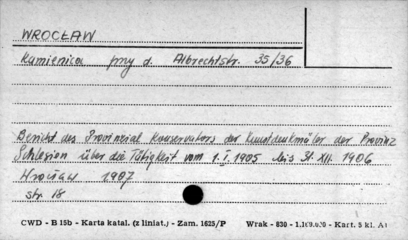 WROCŁAW
Kamienica przy d. Albrechtstr. 35/36
Bericht des Provinzial Konservators der Kunstdenkmäler der Provinz
Schlesien über die Tätigkeit vom 1.I.1905 bis 31.XII.1906
Wrocław 1907
str. 18
CWD - B 15b - Karta katal. (z liniat.) - Zam. 1625/P Wrak - 830 - Kart. 5 kl. A1